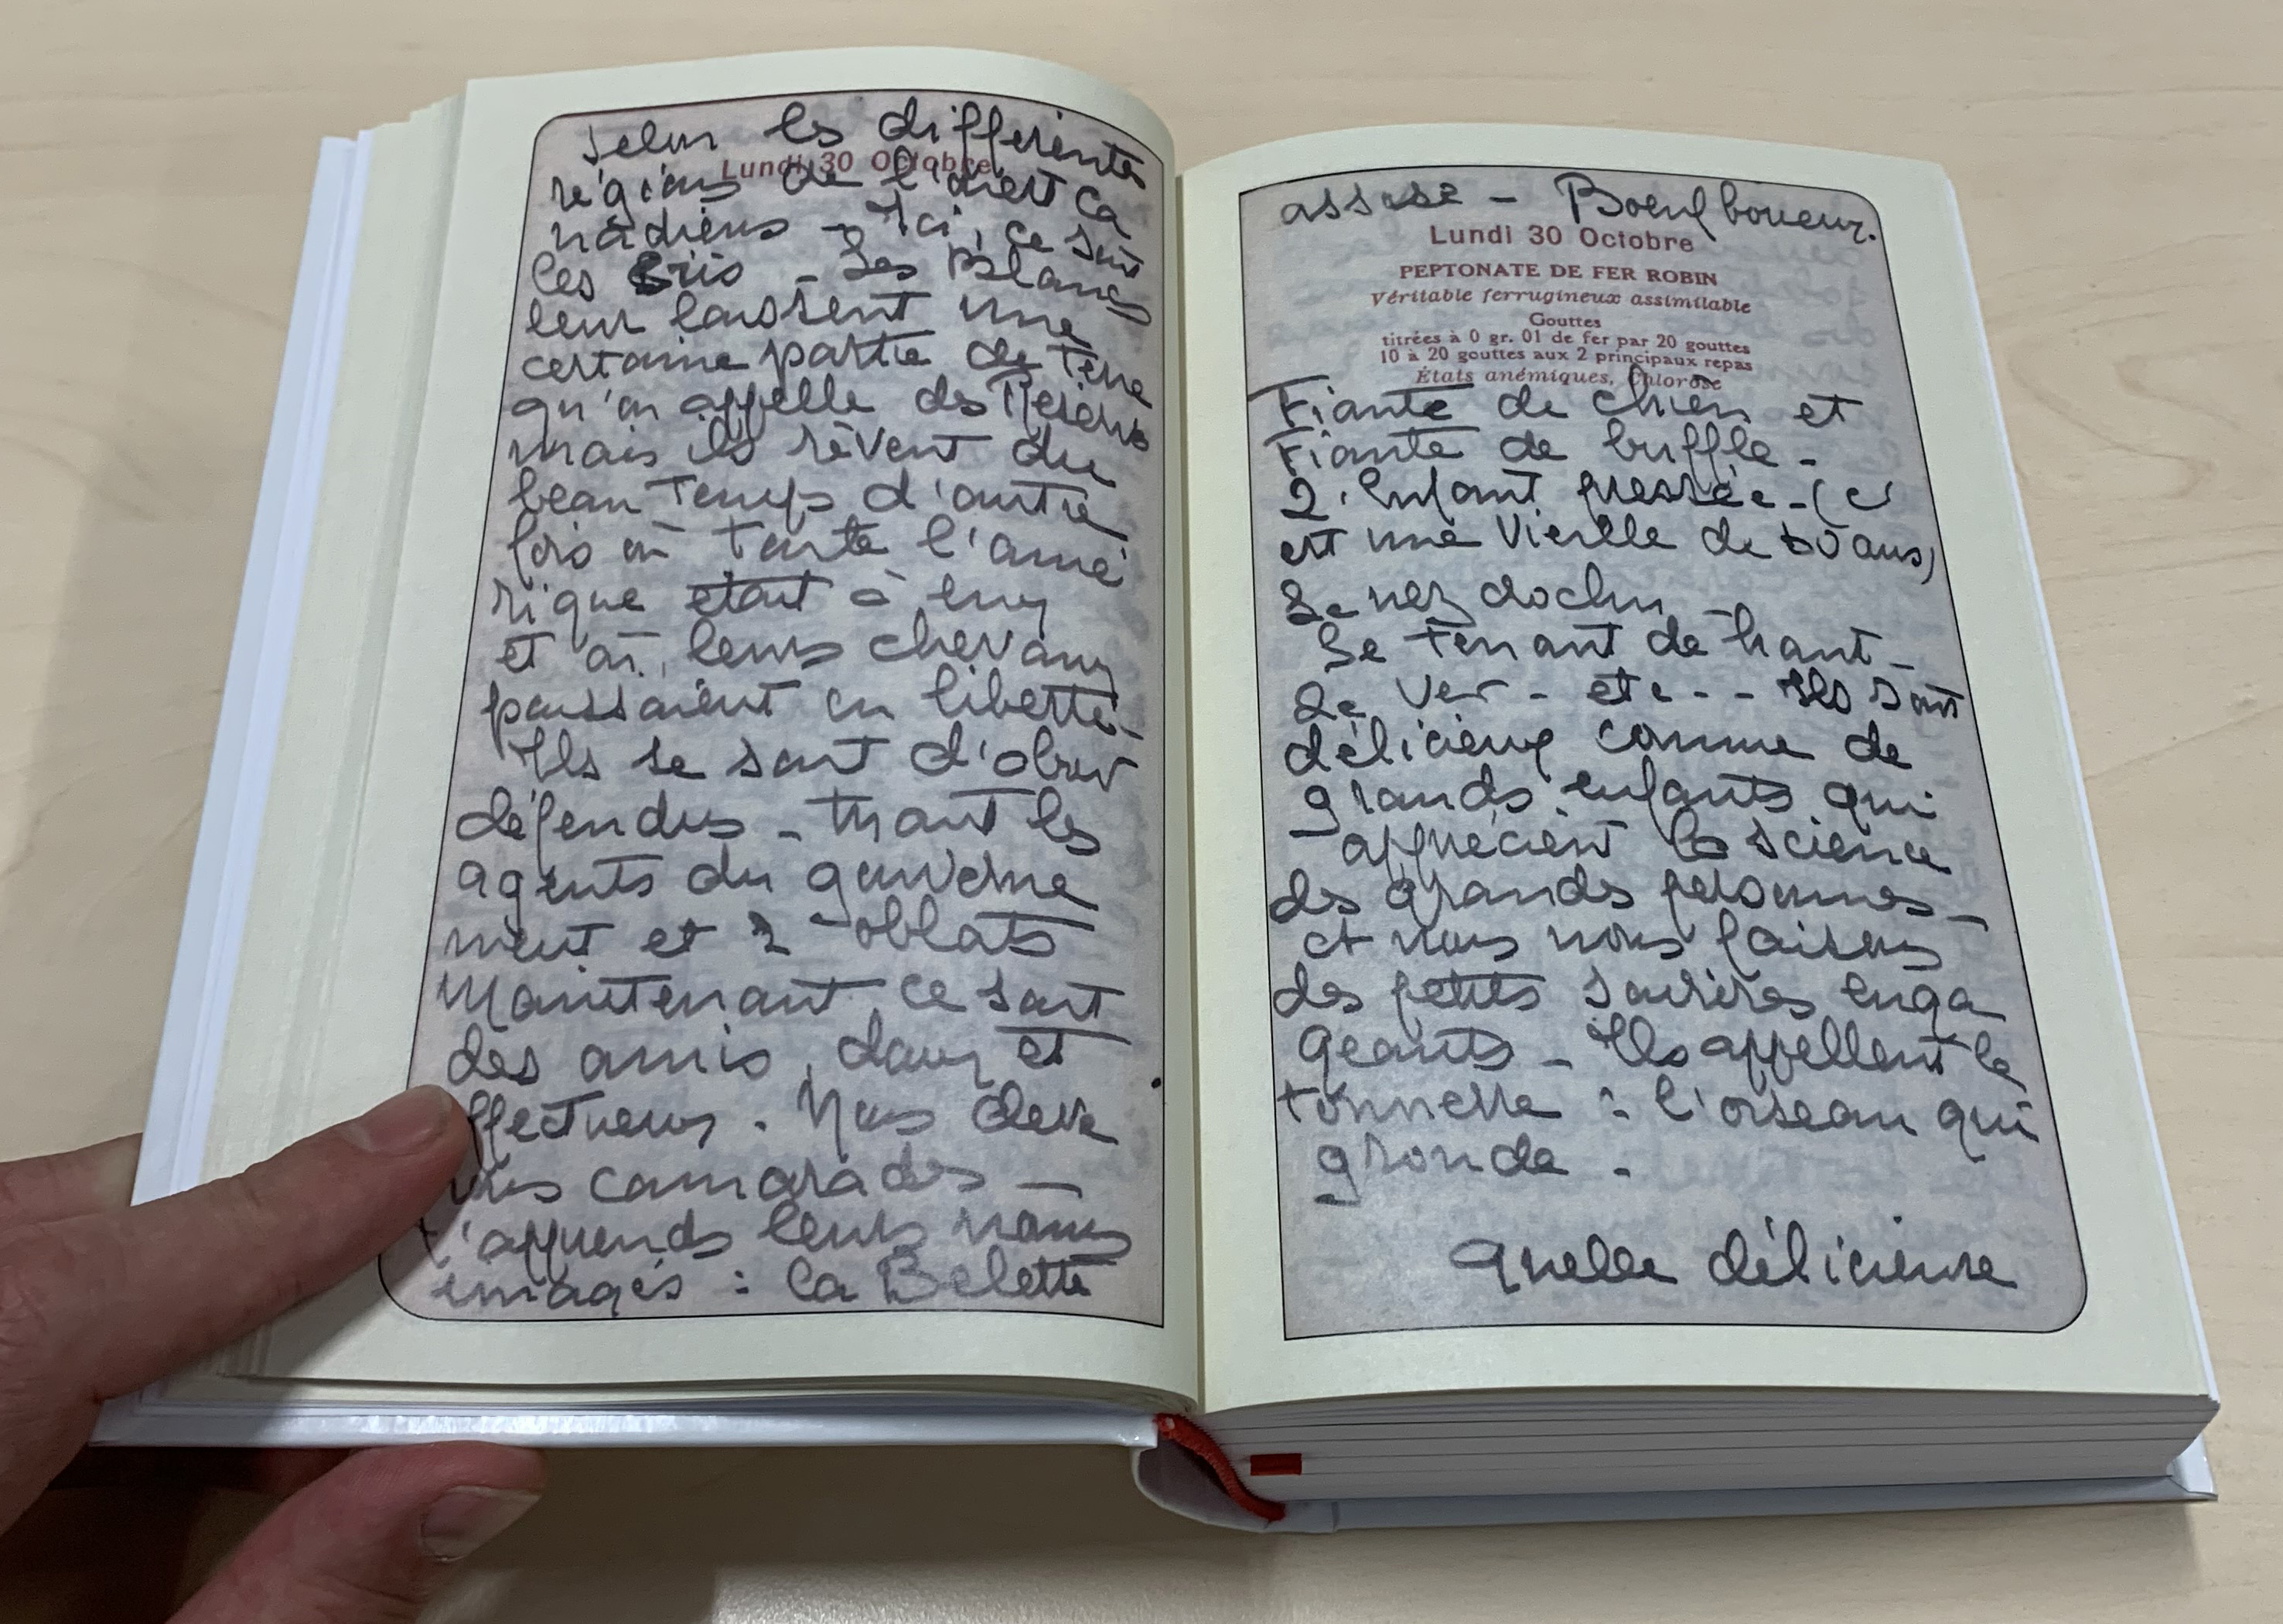 Selon les différentes
Lundi 30 Octobre
régions de l'ouest ca
nadiens - Ici, ce sont
les Cris - Les Blancs
leur laissent une
certaine partie de terre
qu'on appelle des Réserves
mais ils rêvent du
beau temps d'autre
fois où toute l'amé
rique était à eux
et où leurs chevaux
paissaient en liberté -
Ils se sont d'abord
défendus - tuant les
agents du gouverne
ment et 2 oblats
Maintenant ce sont
des amis, doux et
ffectueux. Nous deve
nons camarades -
J'apprends leurs noms
imagés : la Belette
assise - Boeuf boueux.
Lundi 30 Octobre
PEPTONATE DE FER ROBIN
Véritable ferrugineux assimilable
Gouttes
titrées à 0 gr. 01 de fer par 20 gouttes
10 à 20 gouttes aux 2 principaux repas
États anémiques, Chlorose
Fiante de chien et
Fiante de buffle -
L'Enfant pressée - (c'
est une Vieille de 60 ans)
Le nez clochu -
Se tenant de haut -
Le Ver - etc - - Ils sont
délicieux comme de
grands enfants qui
apprécient la science
des grandes personnes -
et nous nous faisons
des petits sourires enga
geants - Ils appellent le
tonnerre : l'oiseau qui
gronde -
Quelle délicieuse